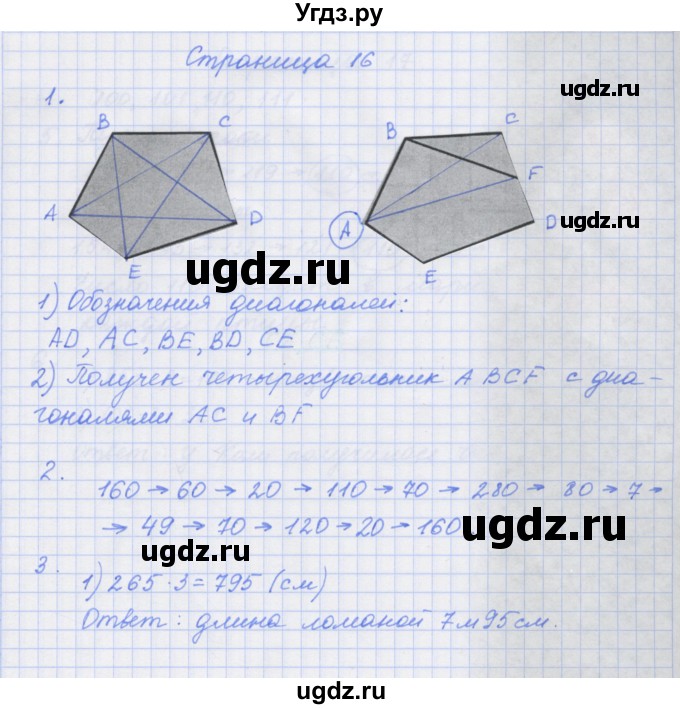 Угдз.ру
Страница 16
1.
B C
A D
E
B C
F
A D
E
ugdz.ru
ugdz.ru
ugdz.ru
1) Обозначения диагоналей:
AD, AC, BE, BD, CE
2) Получен четырехугольник ABCF с диа-
гоналями AC и BF
2.
160 → 60 → 20 → 110 → 70 → 280 → 80 → 7 →
→ 49 → 70 → 120 → 20 → 160
ugdz.ru
ugdz.ru
3.
1) 265 · 3 = 795 (см)
Ответ: длина ломаной 7м 95см.
ugdz.ru